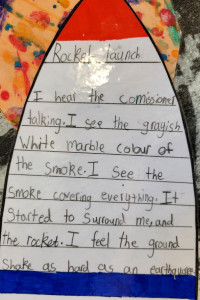 Rocket launch
I hear the comossioner
talking. I see the grayish
White marble colour of
the smoke. I see the
smoke covering everything. It
Started to surround me, and
the rocket. I feel the ground
Shake as hard as an earthquake